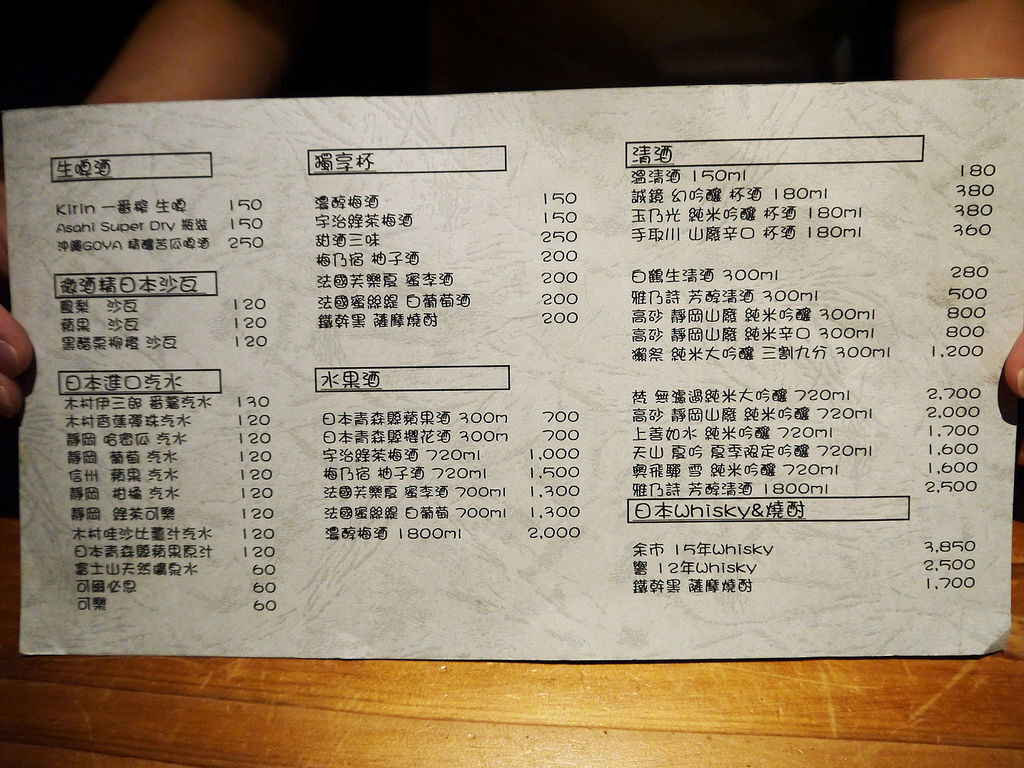 生啤酒
Kirin 一番榨 生啤 150
Asahi Super Dry 瓶裝 150
沖繩GOYA 精釀苦瓜啤酒 250
微酒精日本沙瓦
鳳梨 沙瓦 120
蘋果 沙瓦 120
黑醋栗柳橙 沙瓦 120
日本進口汽水
木村伊三郎 番薯汽水 130
木村香蕉彈珠汽水 120
靜岡 哈密瓜 汽水 120
靜岡 葡萄 汽水 120
信州 蘋果 汽水 120
靜岡 柑橘 汽水 120
靜岡 綠茶可樂 120
木村哇沙比薑汁汽水 120
日本青森縣蘋果原汁 120
富士山天然礦泉水 60
可爾必思 60
可樂 60
獨享杯
濃醇梅酒 150
宇治綠茶梅酒 150
甜酒三味 250
梅乃宿 柚子酒 200
法國芙樂夏 蜜李酒 200
法國蜜絲緹 白葡萄酒 200
鐵幹黑 薩摩燒酎 200
水果酒
日本青森縣蘋果酒 300m 700
日本青森縣櫻花酒 300m 700
宇治綠茶梅酒 720ml 1,000
梅乃宿 柚子酒 720ml 1,500
法國芙樂夏 蜜李酒 700ml 1,300
法國蜜絲緹 白葡萄 700ml 1,300
濃醇梅酒 1800ml 2,000
清酒
溫清酒 150ml 180
誠鏡 幻吟釀 杯酒 180ml 380
玉乃光 純米吟釀 杯酒 180ml 380
手取川 山廢辛口 杯酒 180ml 360
白鶴生清酒 300ml 280
雅乃詩 芳醇清酒 300ml 500
高砂 靜岡山廢 純米吟釀 300ml 800
高砂 靜岡山廢 純米辛口 300ml 800
獺祭 純米大吟釀 三割九分 300ml 1,200
梵 無濾過純米大吟釀 720ml 2,700
高砂 靜岡山廢 純米吟釀 720ml 2,000
上善如水 純米吟釀 720ml 1,700
天山 夏吟 夏季限定吟釀 720ml 1,600
奧飛驒 雪 純米吟釀 720ml 1,600
雅乃詩 芳醇清酒 1800ml 2,500
日本Whisky&燒酎
余市 15年Whisky 3,850
響 12年Whisky 2,500
鐵幹黑 薩摩燒酎 1,700